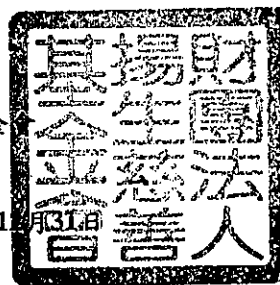 財團法人
揚生慈善
基金會
月31日